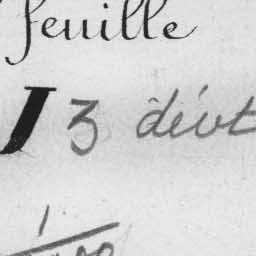 feuille
J 3 dévt
1